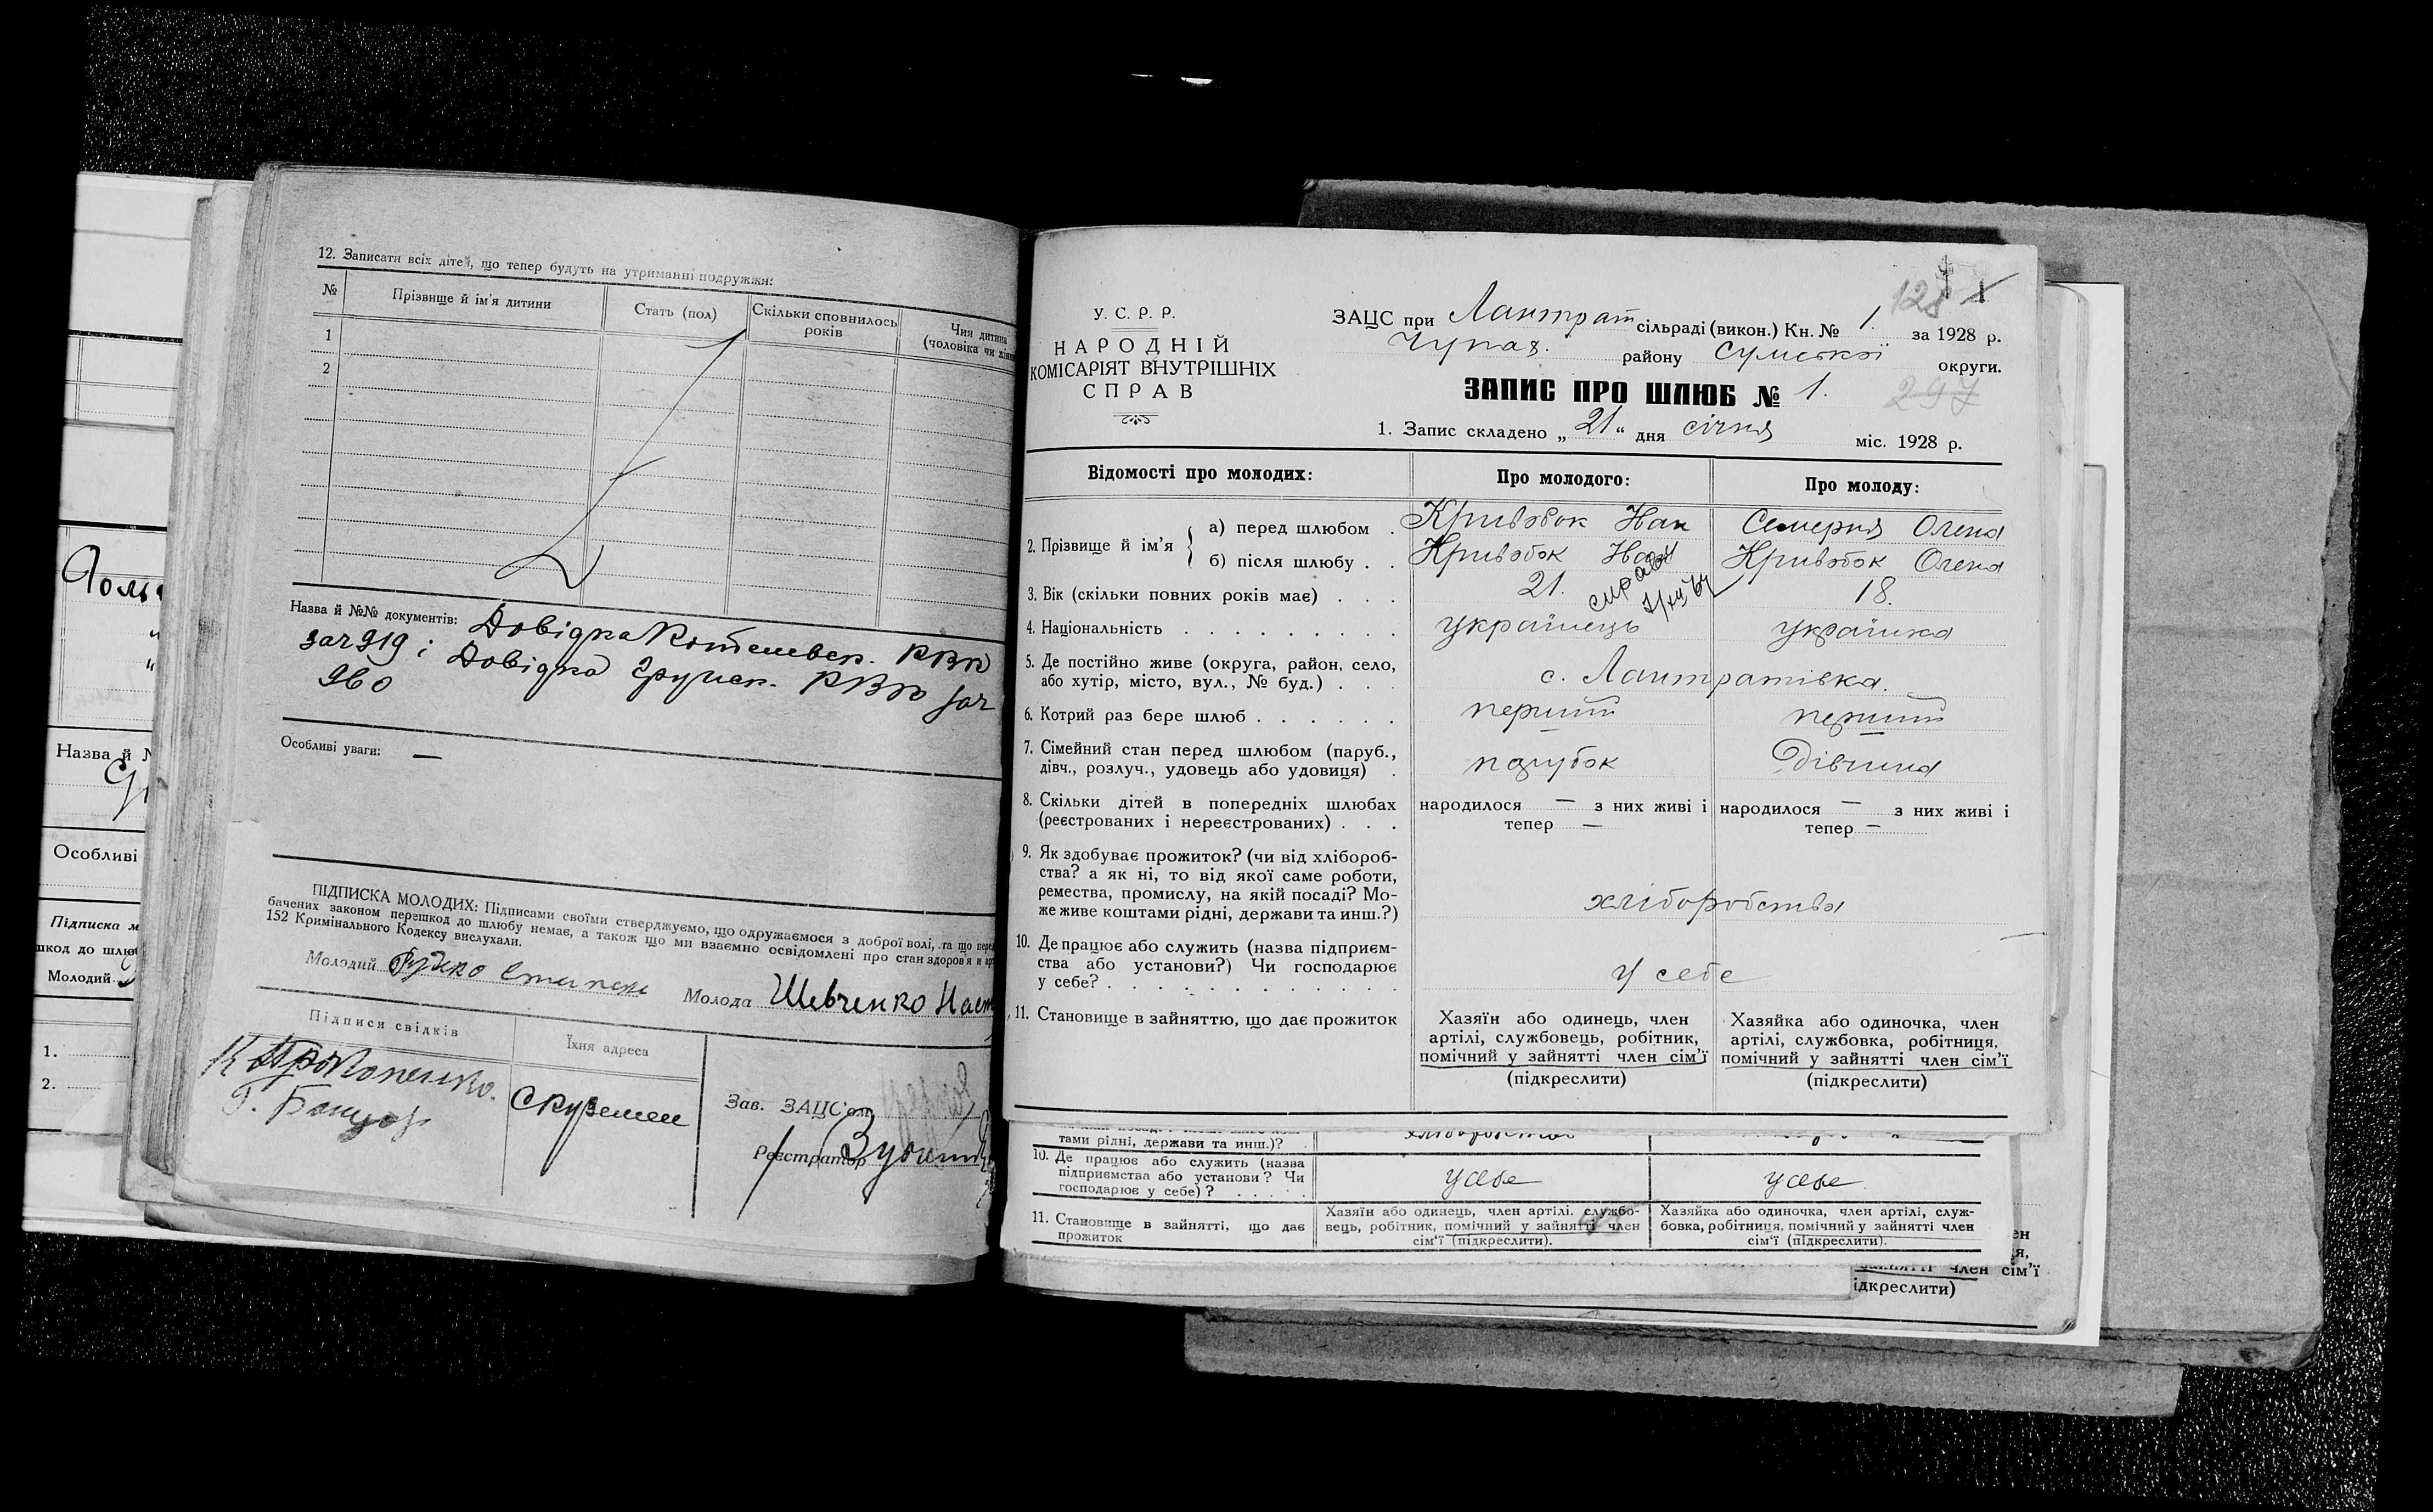 12. Записати всіх дітей, що тепер будуть на утриманні подружжя:
№ Прізвище й ім'я дитини Стать (пол) Скільки сповнилось років Чия дитина (чоловіка чи
1
2
Назва й №№ документів: Довідка Котелевск. РВК
заг 919 і Довідка Грунск. РВК заг
960
Особливі уваги: —
ПІДПИСКА МОЛОДИХ: Підписами своїми стверджуємо, що одружаємося з доброї волі, та що
бачених законом перешкод до шлюбу немає, а також що ми взаємно освідомлені про стан здоров'я и
152 Кримінального Кодексу вислухали.
Молодий Степан Молода Шевченко
Підписи свідків Їхня адреса
Зав. ЗАЦС'ом
Реєстратор
Назва й
Особливі
Підписка
шкод до
Молодий
1.
2.
У. С. Р. Р.
НАРОДНІЙ
КОМІСАРІЯТ ВНУТРІШНІХ
СПРАВ
128
ЗАЦС при Лантрат сільраді (викон.) Кн. № 1. за 1928 р.
Чупах. району Сумської округи.
ЗАПИС ПРО ШЛЮБ № 1.
297
1. Запис складено „21" дня січня міс. 1928 р.
Відомості про молодих: Про молодого: Про молоду:
2. Прізвище й ім'я { а) перед шлюбом . Кривобок Иан Семерня Олена
б) після шлюбу . . Кривобок Кривобок Олена
3. Вік (скільки повних років має) . . . 21. 18.
4. Національність . . . . . . . . . українець українка
5. Де постійно живе (округа, район, село,
або хутір, місто, вул., № буд.) . . . с. Лантратівка.
6. Котрий раз бере шлюб . . . . . . перший перший
7. Сімейний стан перед шлюбом (паруб.,
дівч., розлуч., удовець або удовиця) . парубок Дівчина
8. Скільки дітей в попередніх шлюбах народилося — з них живі і народилося — з них живі і
(реєстрованих і нереєстрованих) . . . тепер — тепер —
9. Як здобуває прожиток? (чи від хлібороб-
ства? а як ні, то від якої саме роботи,
ремества, промислу, на якій посаді? Мо-
же живе коштами рідні, держави та инш.?) хліборобства
10. Де працює або служить (назва підприєм-
ства або установи?) Чи господарює
у себе? . . . . . . . . . . . . . у себе
11. Становище в зайняттю, що дає прожиток Хазяїн або одинець, член Хазяйка або одиночка, член
артілі, службовець, робітник, артілі, службовка, робітниця,
помічний у зайнятті член сім'ї помічний у зайнятті член сім'ї
(підкреслити) (підкреслити)
тами рідні, держави та инш.)?
10. Де працює або служить (назва
підприємства або установи? Чи усебе усебе
господарює у себе)? . . . . .
11. Становище в зайнятті, що дає
прожиток
Хазяїн або одинець, член артілі, службо-
вець, робітник, помічний у зайнятті член
сім'ї (підкреслити).
Хазяйка або одиночка, член артілі, служ-
бовка, робітниця, помічний у зайнятті член
сім'ї (підкреслити).
член сім'ї
ідкреслити)